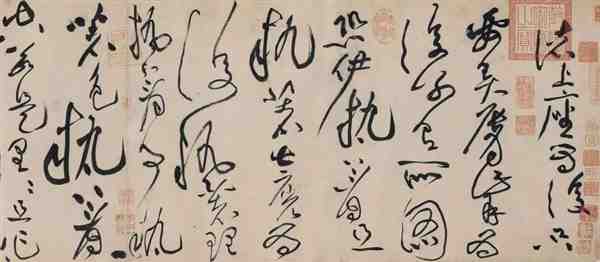 諸上座為復只
要弄脣觜為
復別有所圖
恐伊執著且
執著甚麼為
復執著理
執著事執
著色執著
空若是理〻且作